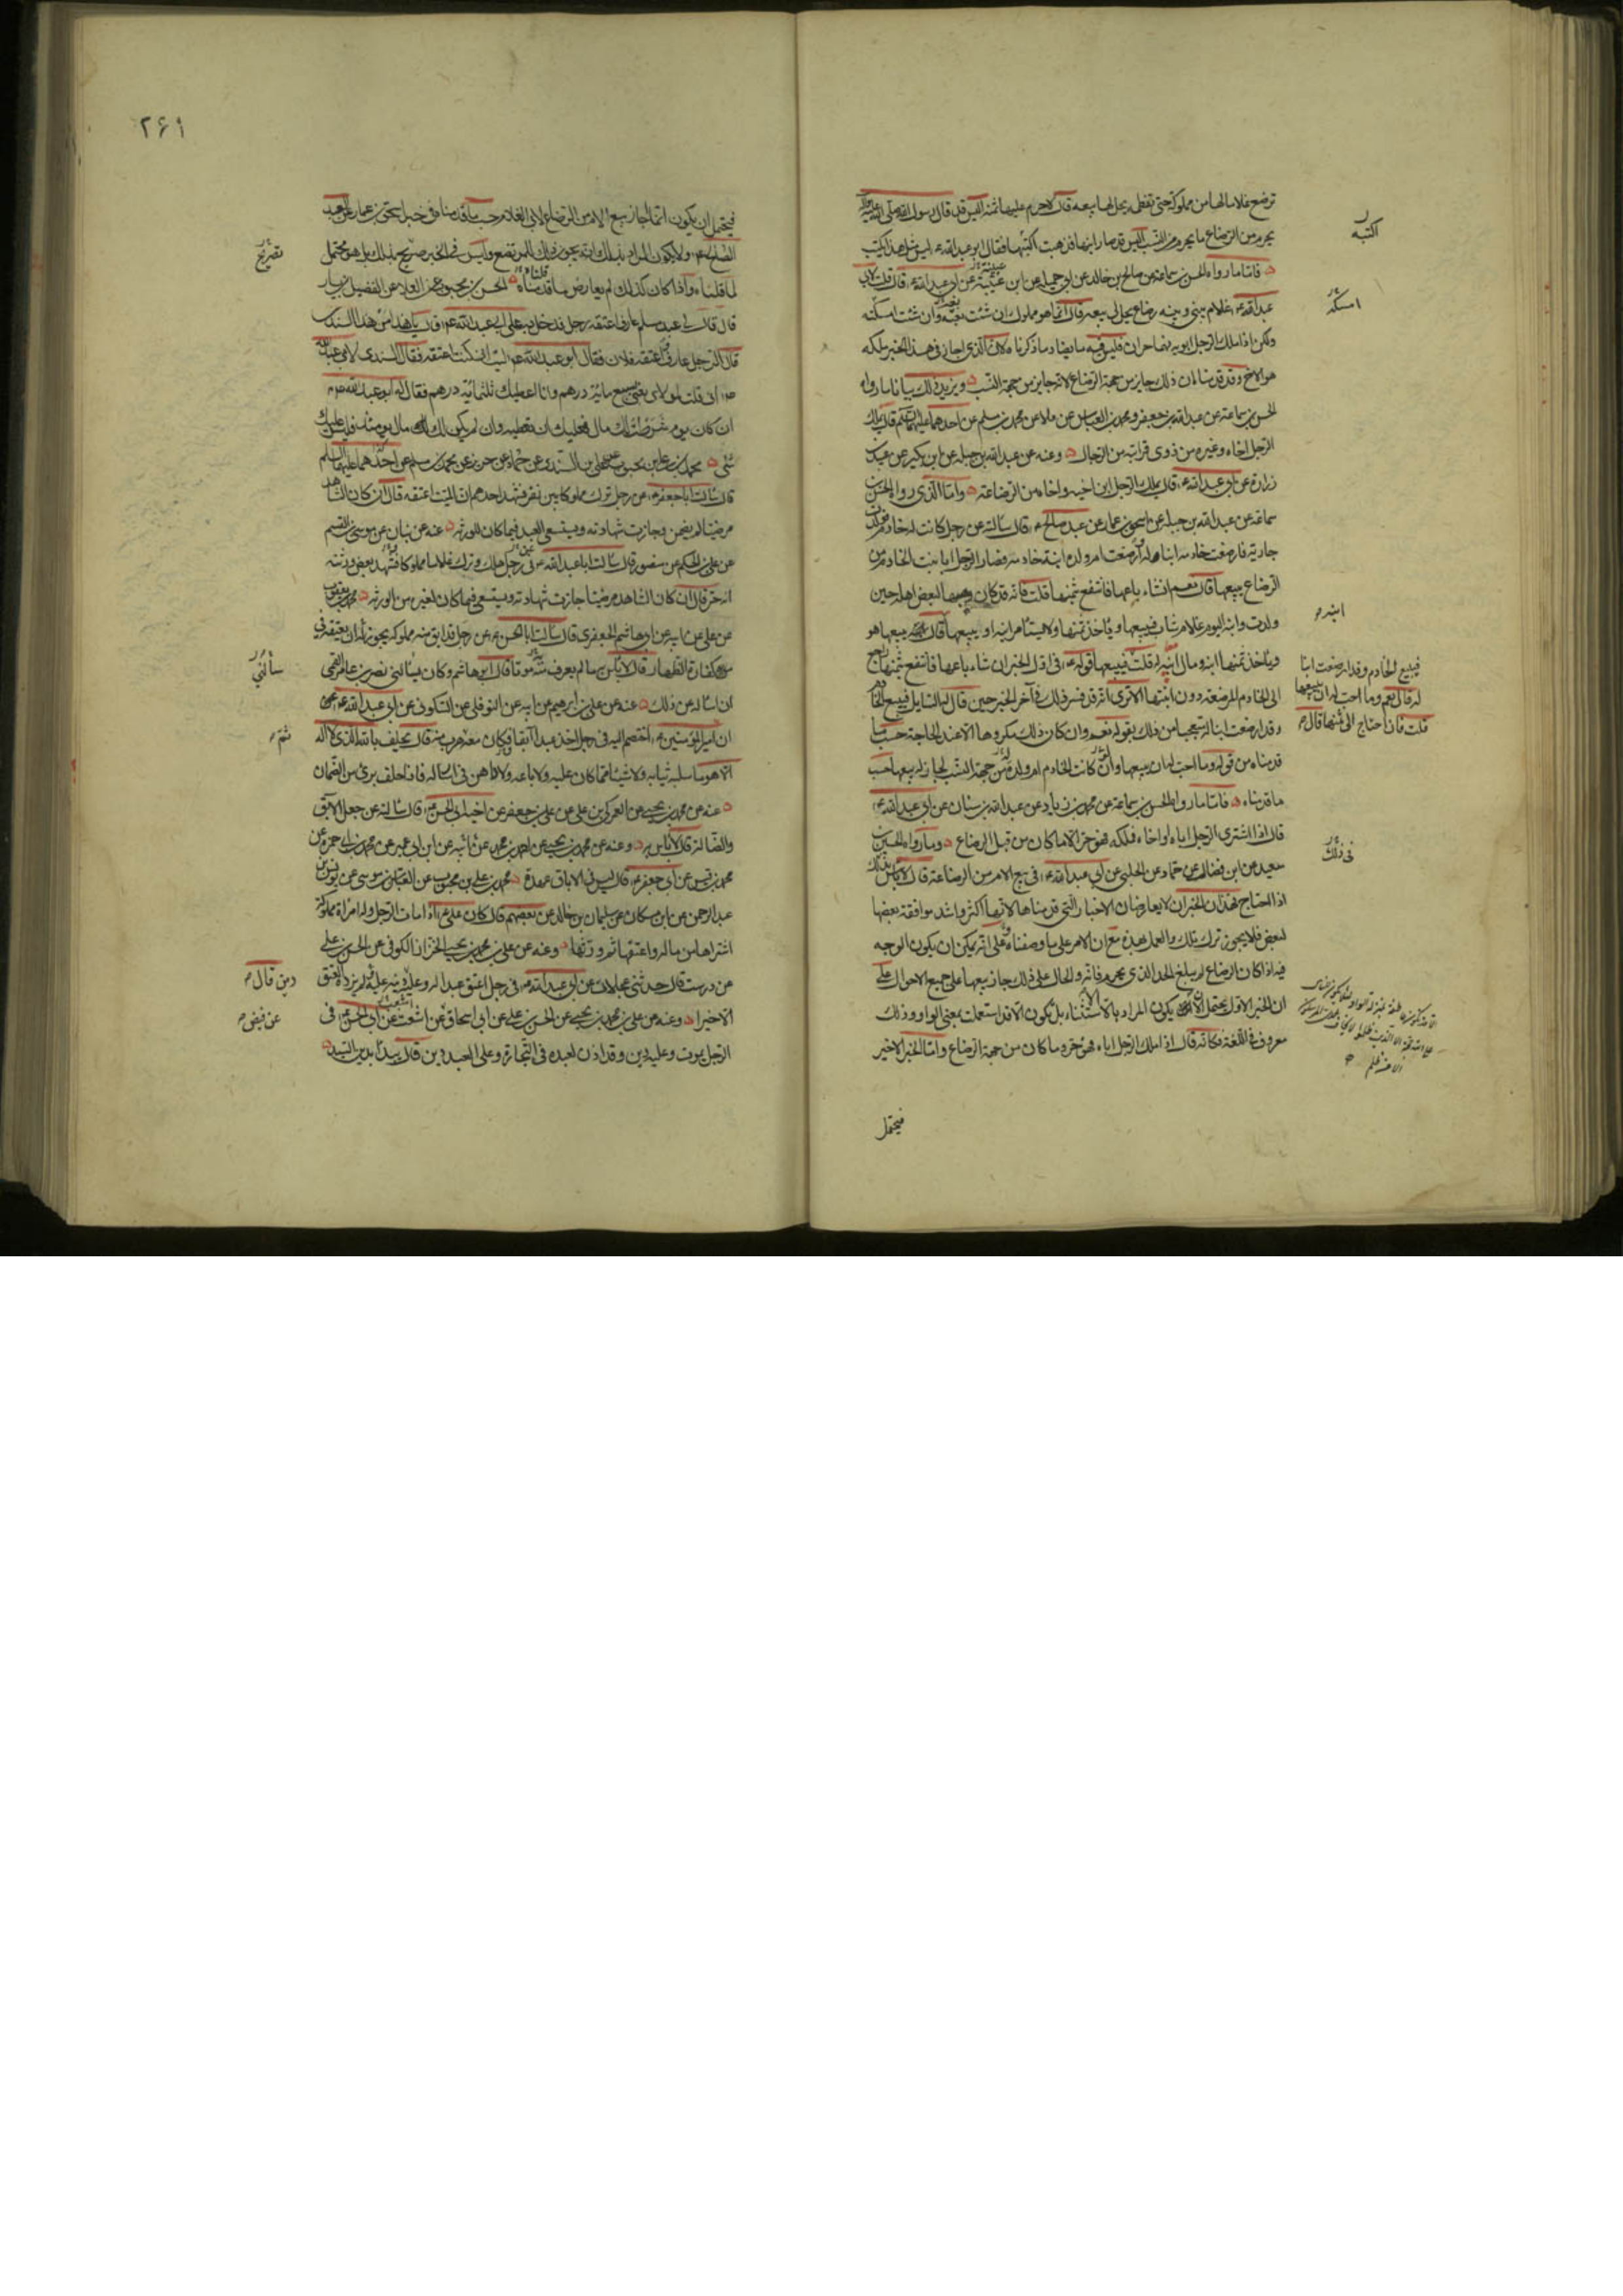 ترضع غلاما لها من مملوكة حتى تفطمه يحل لها بيعه قال لا حرم عليها ثمنه اليس قد قال رسول الله صلى الله عليه وآله
يحرم من الرضاع ما يحرم من النسب اليس قد صار ابنها فذهبت اكتبه فقال ابو عبد الله ع ليس مثل هذا يكتب
فاما ما رواه الحسن بن سماعة عن صالح بن خالد عن ابي جميلة عن ابن عتيبة عن ابي عبد الله ع قال قلت لابي
عبد الله ع غلام بيني وبينه رضاع يحل لي بيعه قال انما هو مملوك ان شئت بعته وان شئت امسكته
ولكن اذا ملك الرجل ابويه فهما حران فليس فيه ما يضاد ما ذكرناه لان الذي اجاز في هذا الخبر ملكه
هو الاخ وقد قدمنا ان ذلك جايز من جهة الرضاع لانه جايز من جهة النسب ويزيد ذلك بيانا ما رواه
الحسن بن سماعة عن عبد الله بن جعفر ومحمد بن العباس عن علاء عن محمد بن مسلم عن احدهما عليهما السلم قال يملك
الرجل اخاه وغيره من ذوي قرابته من الرجال وعنه عن عبد الله بن جبلة عن ابن بكير عن عبيد بن
زرارة عن ابي عبد الله ع قال يملك الرجل ابن اخيه واخاه من الرضاعة واما الذي رواه الحسن بن
سماعة عن عبد الله بن جبلة عن اسحق بن عمار عن عبد صالح ع قال سالته عن رجل كانت له خادم فولدت
جارية فارضعت خادمه ابنا له وارضعت ام ولده ابنة خادمه فصار الرجل ابا بنت الخادم من
الرضاع يبيعها قال نعم ان شاء باعها فانتفع بثمنها قلت فانه قد كان وهبها لبعض اهله حين
ولدت وابنه اليوم غلام شاب فيبيعها وياخذ ثمنها ولا يستامر ابنه او يبيعها ابنه قال يبيعها هو
وياخذ ثمنها ابنه ومال ابنه له قلت فيبيع قوله ع في اول الخبر ان شاء باعها فانتفع بثمنها راجع
الى الخادم المرضعة دون ابنتها الا ترى انه قد فسر ذلك في آخر الخبر حين قال له السايل فيبيع الخادم
وقد ارضعت ابنا له تعجبا من ذلك بقوله نعم وان كان ذلك مكروها الا عند الحاجة حسب ما
قدمناه من قوله وما احب له ان يبيعها ولو كانت الخادم ام ولده من جهة النسب لجاز له بيعها حسب
ما قدمناه فاما ما رواه الحسن بن سماعة عن محمد بن زياد عن عبد الله بن سنان عن ابي عبد الله ع
قال اذا اشترى الرجل اباه او اخاه فملكه فهو حر الا ما كان من قبل الرضاع وما رواه الحسين بن
سعيد عن ابن فضال عن حماد عن الحلبي عن ابي عبد الله ع في بيع الام من الرضاعة قال لا باس بذلك
اذا احتاج فهذان الخبران لا يعارضان الاخبار التي قدمناها لانها اكثر واشد موافقة بعضها
لبعض فلا يجوز ترك تلك والعمل بهذه مع ان الامر على ما وصفناه على انه يمكن ان يكون الوجه
فيه اذا كان الرضاع لم يبلغ الحد الذي يحرم فانه والحال على ذلك جاز بيعها على جميع الاحوال على
ان الخبر الاول يحتمل ان يكون المراد بالا الاستثناء بل تكون الا قد استعملت بمعنى الواو وذلك
معروف في اللغة فكانه قال اذا ملك الرجل اباه فهو حر وما كان من جهة الرضاع واما الخبر الاخير
فيحتمل
اكتبه
امسكته
ابنه
فيبيع الخادم وقد ارضعت ابنا
له قال نعم وما احب له ان يبيعها
قلت فان احتاج الى ثمنها قال
في ذلك
۲۶۱
فيحتمل ان يكون انما اجاز بيع الام من الرضاع لابي الغلام حسب ما قدمنا في خبر اسحق بن عمار عن العبد
الصالح ع ولا يكون المراد بذلك انه يجوز ذلك للمرتضع وليس في الخبر صريح بذلك بل هو محتمل
لما قلناه واذا كان كذلك لم يعارض ما قدمناه الحسن بن محبوب عن العلاء عن الفضيل بن يسار
قال قال لي عبد مسلم عارف اعتقه رجل فدخل به على ابي عبد الله ع فقال يا هذا من هذا السندي
قال الرجل عارف اعتقه فلان فقال ابو عبد الله ع ليت اني كنت اعتقته فقال السندي لابي عبد الله
ع اني قلت لمولاي بعني بسبع مائة درهم وانا اعطيك ثلثمائة درهم فقال له ابو عبد الله ع
ان كان يوم شرطت لك مال فعليك ان تعطيه وان لم يكن لك مال يومئذ فليس عليك
شيء محمد بن علي بن محبوب عن علي بن السندي عن حماد عن حريز عن محمد بن مسلم عن احدهما عليهما السلم
قال سالت ابا جعفر ع عن رجل ترك مملوكا بين نفر فشهد احدهم ان الميت اعتقه قال ان كان الشاهد
مرضيا لم يضمن وجازت شهادته ويستسعى العبد فيما كان للورثة عنه عن بنان عن موسى بن القسم
عن علي بن الحكم عن منصور قال سالت ابا عبد الله ع عن رجل هلك وترك غلاما مملوكا فشهد بعض ورثته
انه حر قال ان كان الشاهد مرضيا جازت شهادته ويستسعى فيما كان لغيره من الورثة محمد بن يعقوب
عن علي عن ابيه عن ابي هاشم الجعفري قال سالت ابا الحسن ع عن رجل قد ابق منه مملوكه يجوز له ان يعتقه في
كفارة الظهار قال لا باس به ما لم يعرف منه موتا قال ابو هاشم وكان يسالني نصر بن عامر القمي
ان اساله عن ذلك عنه عن علي بن ابرهيم عن ابيه عن النوفلي عن السكوني عن ابي عبد الله ع
ان امير المؤمنين ع اختصم اليه في رجل اخذ عبدا آبقا وكان معه ثم هرب منه قال يحلف بالله الذي لا اله
الا هو ما سلبه ثيابه ولا شيئا مما كان عليه ولا باعه ولا داهن في ارساله فاذا حلف برئ من الضمان
عنه عن محمد بن يحيى عن العمركي بن علي عن علي بن جعفر عن اخيه ابي الحسن ع قال سالته عن جعل الآبق
والضالة قال لا باس به وعنه عن محمد بن يحيى عن احمد بن محمد عن ابن ابي عمير عن محمد بن ابي حمزة عن
محمد بن قيس عن ابي جعفر ع قال ليس في الاباق عهدة محمد بن علي بن محبوب عن العباس بن موسى عن يونس بن
عبد الرحمن عن ابن مسكان عن سليمان بن خالد عن بعضهم قال كان علي ع اذا مات الرجل وله امراة مملوكة
اشتراها من ماله واعتقها ثم ورثها وعنه عن علي بن محمد بن يحيى الخزاز الكوفي عن الحسن بن علي
عن درست قال حدثني عجلان عن ابي عبد الله ع في رجل اعتق عبدا له وعليه دين قال دينه عليه لم يزده العتق
الا خيرا وعنه عن علي بن محمد بن يحيى عن الحسن بن علي عن ابي اسحاق عن اشعث عن ابي الحسن ع في
الرجل يموت وعليه دين وقد اذن لعبده في التجارة وعلى العبد دين قال يبدا بدين السيد
تصريح
سألني
ثم
دين قال
عن فيض